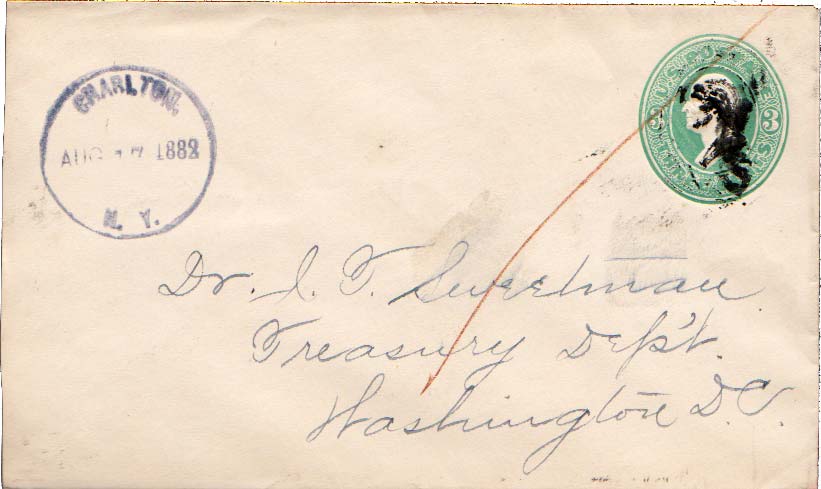 CHARLTON.
AUG 17 1882
N. Y.
U.S. POSTAGE
3 3
THREE CENTS
Dr. J. T. Sweetman
Treasury Dep't.
Washington D.C.